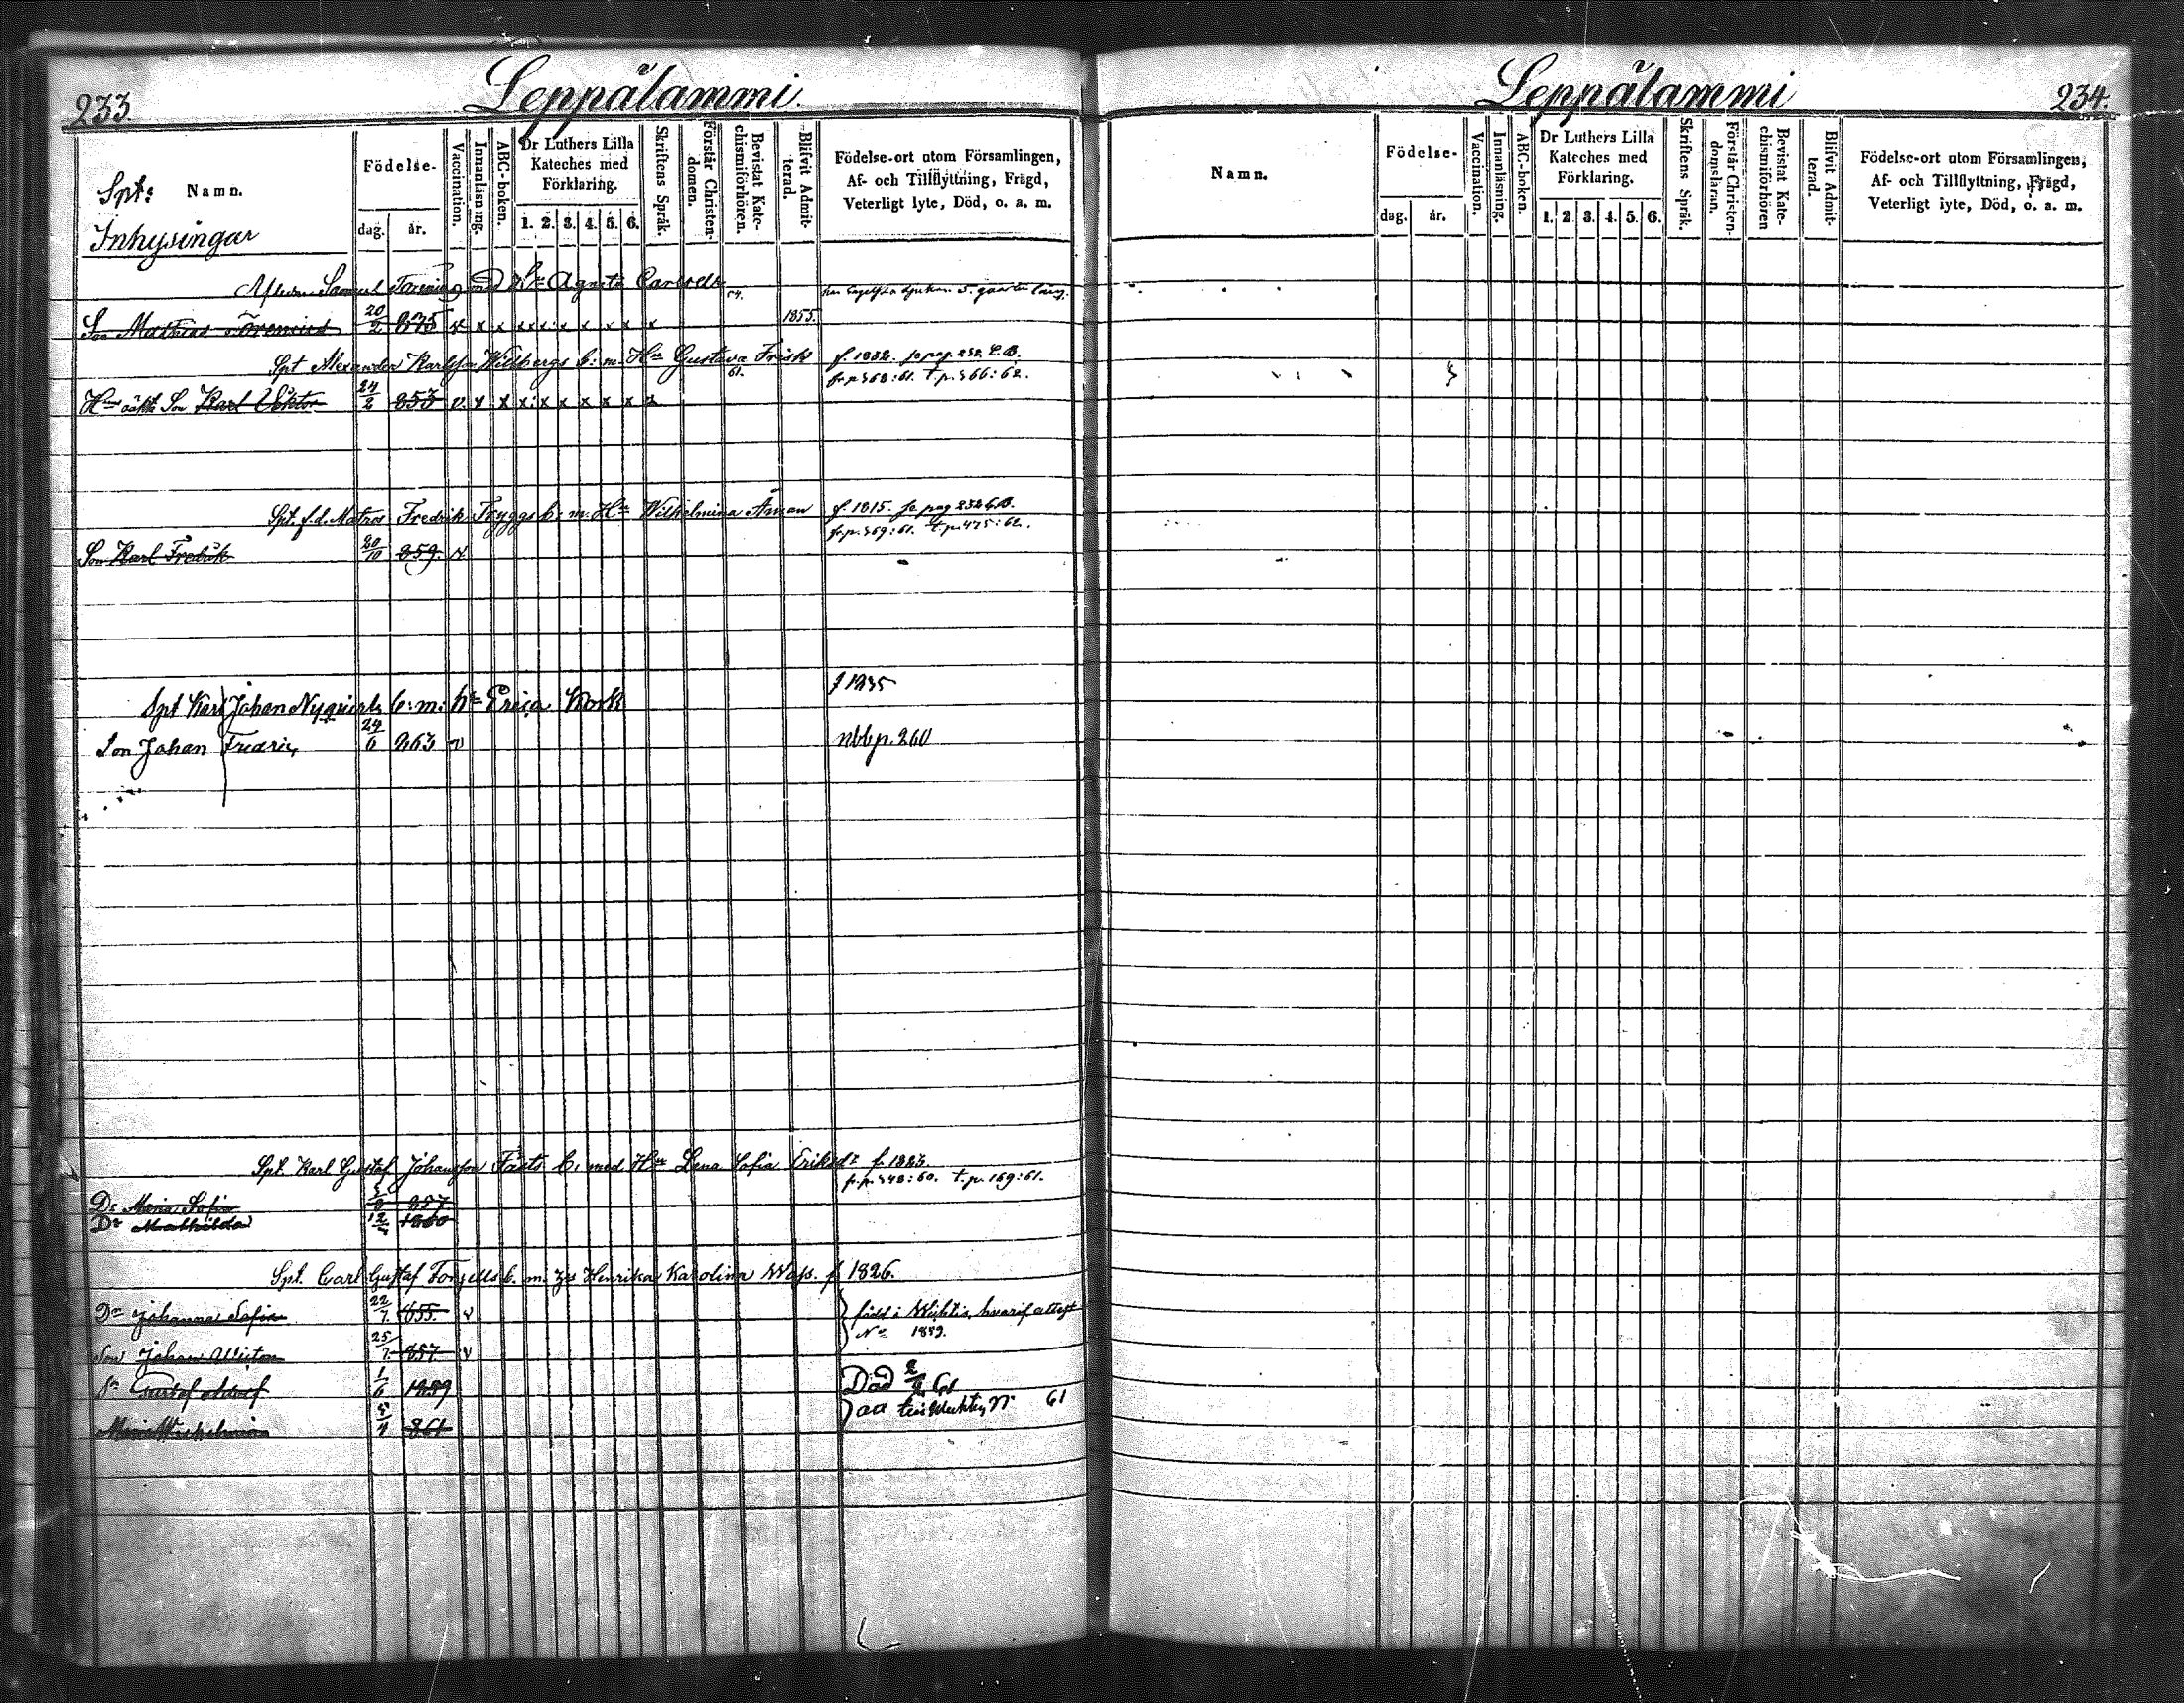 233.
Leppälammi.
Spt:
Namn.
Inhysingar
Födelse-
dag.
år.
Vaccination.
Innanläsning.
ABC-boken.
Dr Luthers Lilla
Kateches med
Förklaring.
1. 2. 3. 4. 5. 6.
Skriftens Språk.
Förstår Christen-
domen.
Bevistat Kate-
chismiförhören.
Blifvit Admit-
terad.
Födelse-ort utom Församlingen,
Af- och Tillflyttning, Frägd,
Veterligt lyte, Död, o. a. m.
Samuel med Hn Agneta
Son Mathias 20/2 1855.
Spt Alexander Karlsson Wilsbergs b: m. Hn Gustava Frisk f. 1832. fr pag. 232 C.B.
61. fr. p. 368:61. t. p. 366:62.
Hns oäkta Son Karl Viktor 24/2 853 v. x x x x x x x x x
Spt. f.d. Matros Fredrik Tryggs b: m: Hn Wilhelmina Åman f. 1815. fr pag 232 C.B.
fr. p. 369:61. t. p. 475:62.
Son Karl Fredrik 20/10 859. v.
f 1835
Spt Karl Johan Nyqvists b: m: hn Erica Kock
Son Johan Fredric 24/6 863 v nbb p. 260
Spt. Karl Gustaf Johansson Fasts b. med Hn Lena Sofia Eriksdr f. 1823.
fr. p. 348:60. t. p. 169:61.
Dr Maria Sofia 857
Dr Mathilda 12 1860
Spt. Carl Gustaf b. m. Henrika Karolina f 1826.
Dn Johanna Sofia 22/7. 855. v född i Wichtis, hvarif attest
No 1859.
Son Johan Wictor 25/7 857 v
Sn Gustaf Adolf 1/6 1859 Död 61
Maria Wilhelmina 5/4 861 61
Leppälammi
234.
Namn.
Födelse-
dag.
år.
Vaccination.
Innanläsning.
ABC-boken.
Dr Luthers Lilla
Kateches med
Förklaring.
1. 2. 3. 4. 5. 6.
Skriftens Språk.
Förstår Christen-
domsläran.
Bevistat Kate-
chismiförhören
Blifvit Admit-
terad.
Födelse-ort utom Församlingen,
Af- och Tillflyttning, Frägd,
Veterligt lyte, Död, o. a. m.